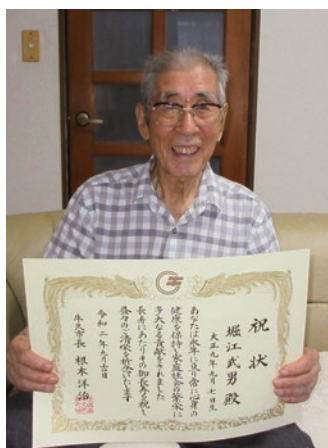 祝状
堀江武勇殿
大正九年九月七日生
あなたは永年に亘り常に心身の
健康を保持し家庭社会の繁栄に
多大なる貢献をされました
長寿にあたりその御長寿を祝し
益々のご清栄を祈念いたします
令和二年九月吉日
牛久市長 根本洋治